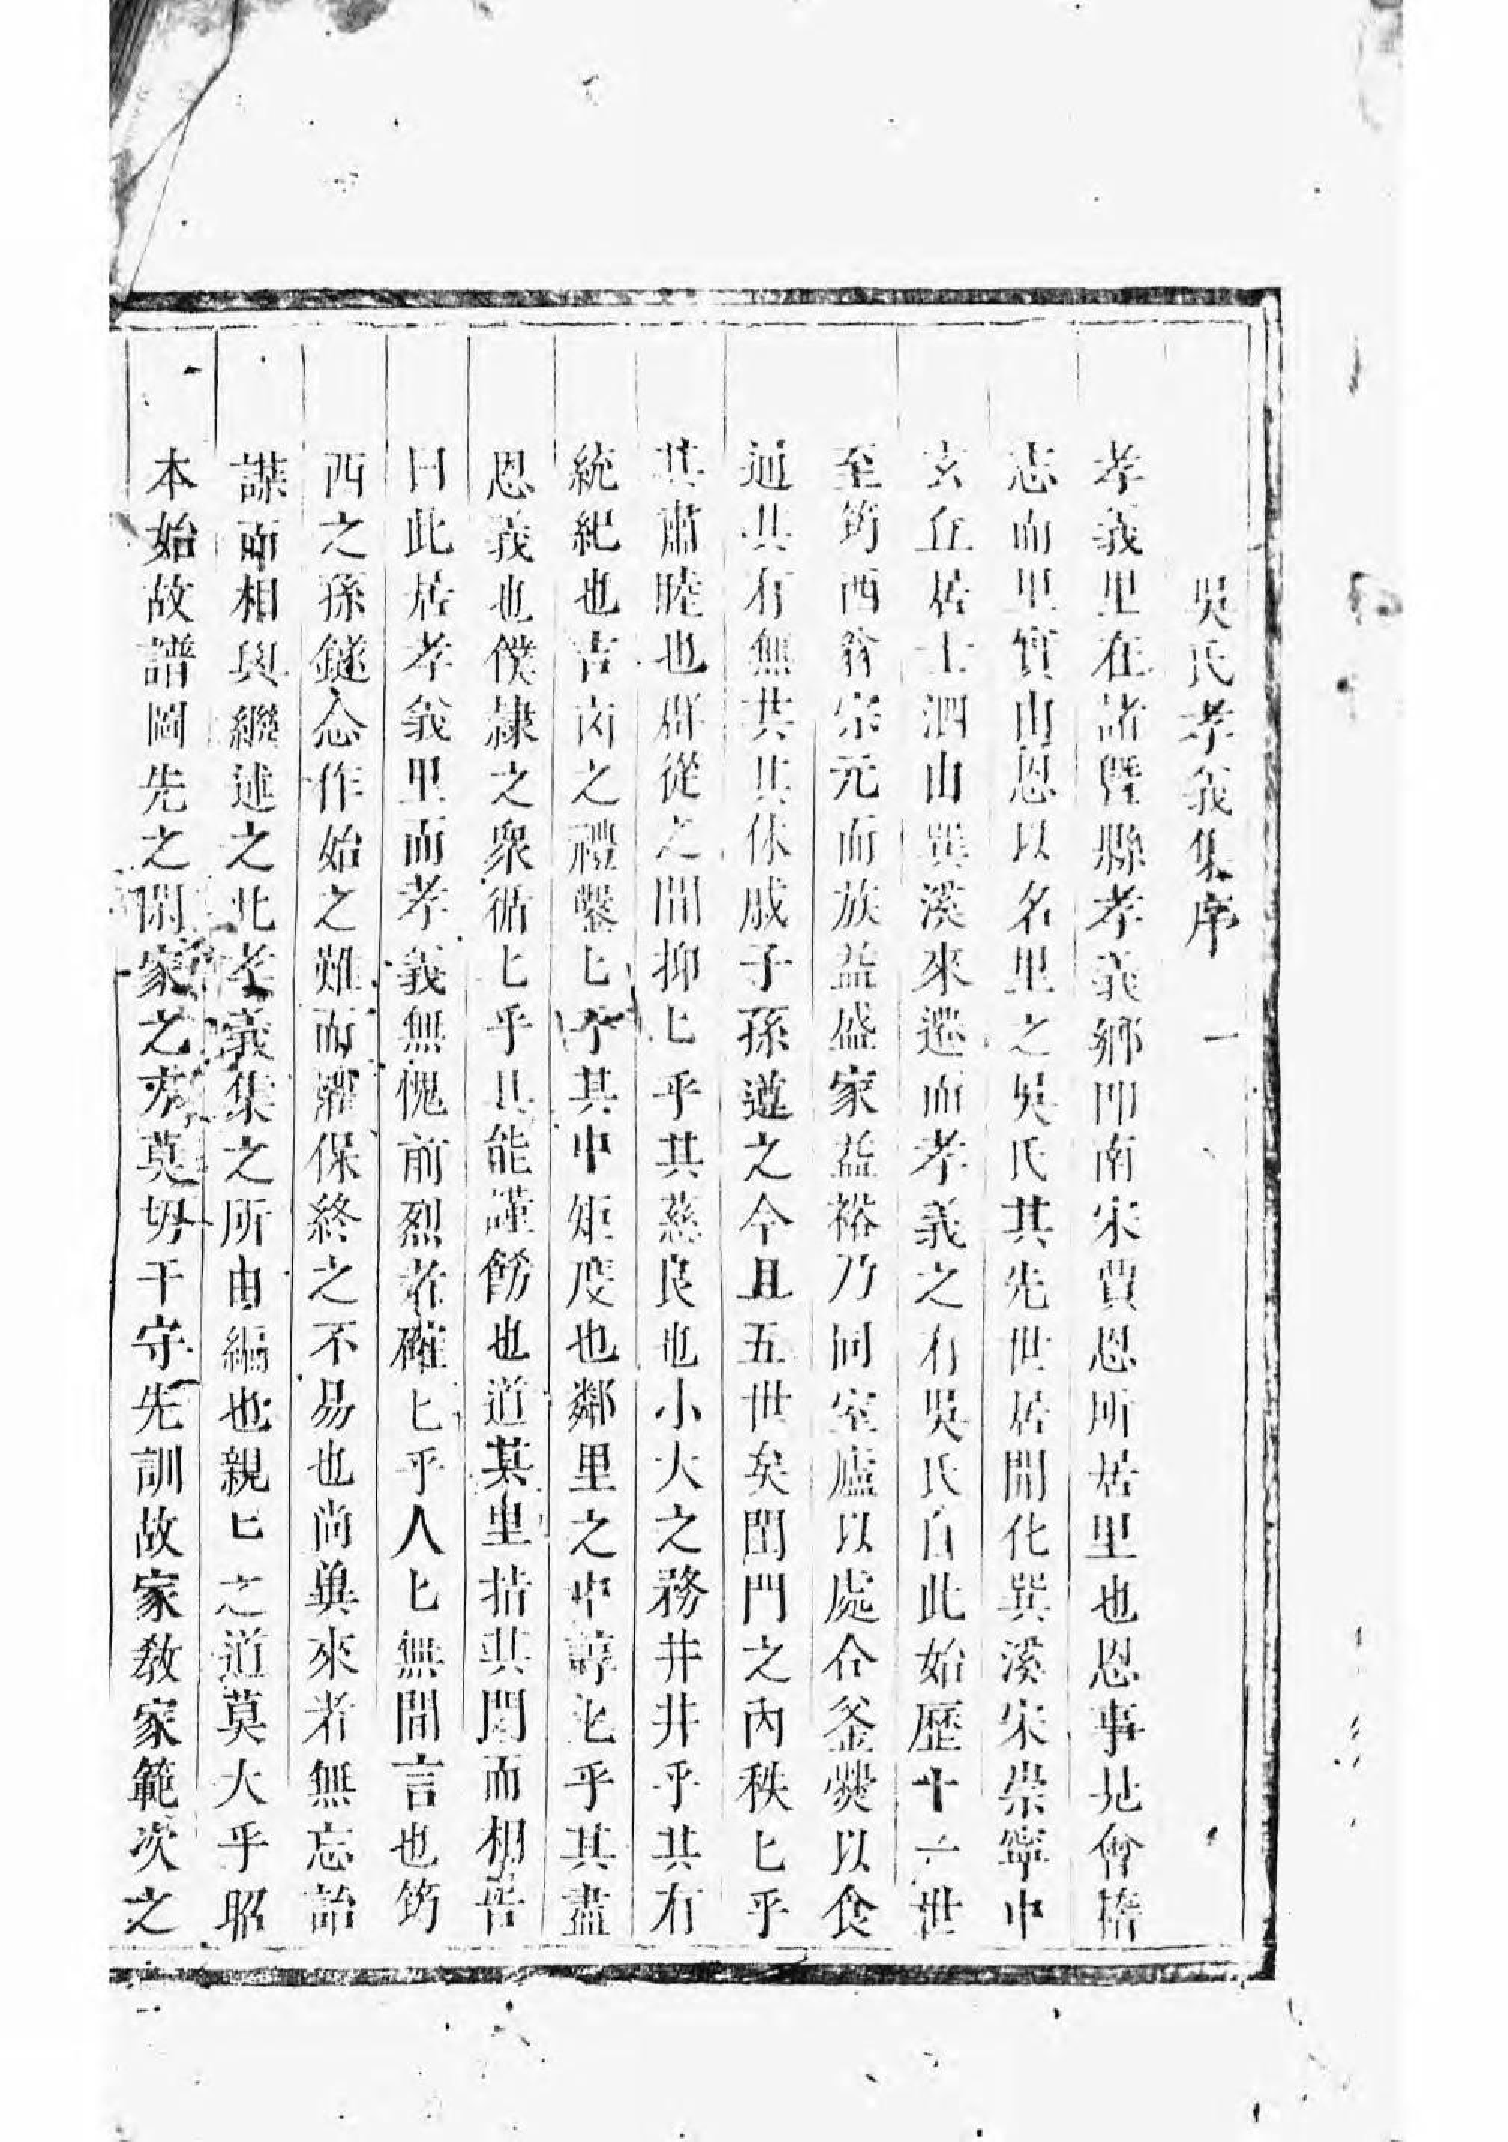 吳氏孝義集序一
孝義里在諸暨縣孝義鄉即南宋賈恩所居里也恩事見會稽
志而里實由恩以名里之吳氏其先世居開化巽溪宋崇寧中
玄丘居士泗由巽溪來遷而孝義之有吳氏自此始歷十六世
至筠西翁宗元而族益盛家益裕乃同室廬以處合釜爨以食
通其有無共其休戚子孫遵之今且五世矣閨門之內秩匕乎
其肅睦也群從之間抑匕乎其慈良也小大之務井井乎其有
統紀也吉凶之禮鑿匕乎其中矩度也鄰里之中諄匕乎其盡
恩義也僕隸之眾循匕乎其能謹飭也道其里指其閭而相告
曰此居孝義里而孝義無愧前烈者確匕乎人匕無間言也筠
西之孫鐩念作始之難而灌保終之不易也尚冀來者無忘詒
謀而相與繼述之此孝義集之所由編也親匕之道莫大乎昭
本始故譜圖先之閑家之方莫切于守先訓故家教家範次之